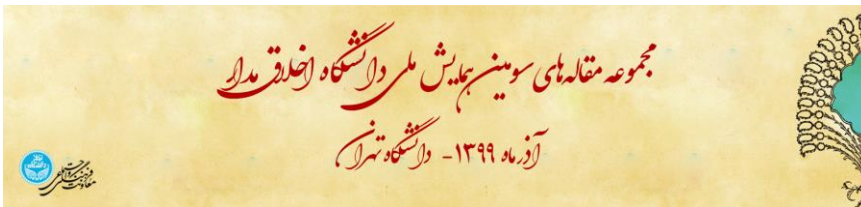 مجموعه مقاله‌های سومین همایش ملی دانشگاه اخلاق مدار
آذر ماه ۱۳۹۹- دانشگاه تهران
معاونت فرهنگی و اجتماعی